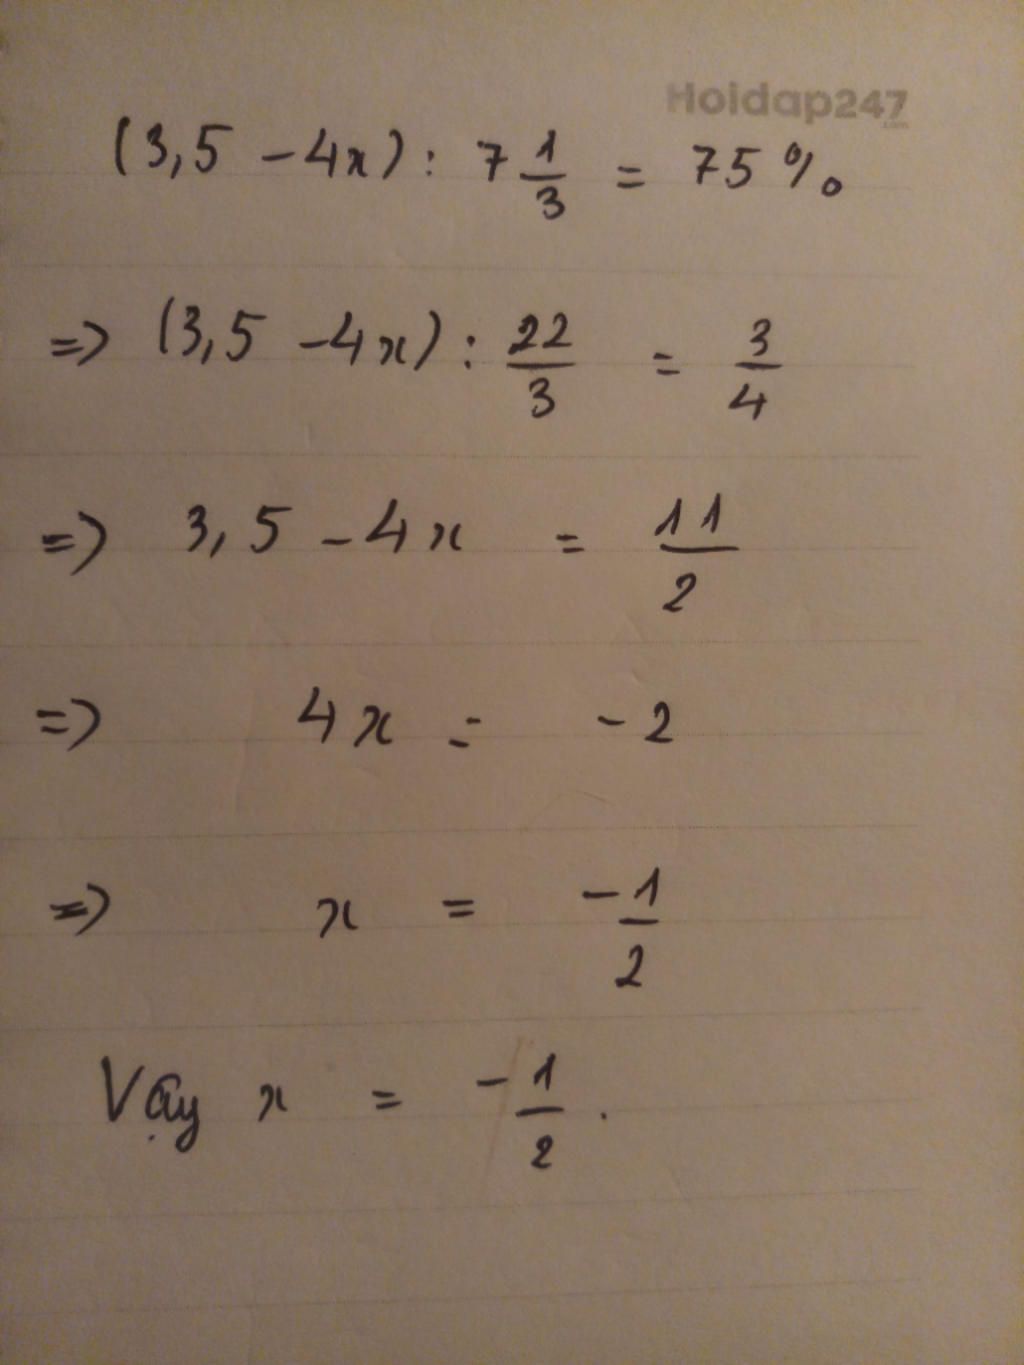 Hoidap247
.com
(3,5 - 4x) : 7 1/3 = 75%
=> (3,5 - 4x) : 22/3 = 3/4
=> 3,5 - 4x = 11/2
=> 4x = -2
=> x = -1/2
Vậy x = -1/2.